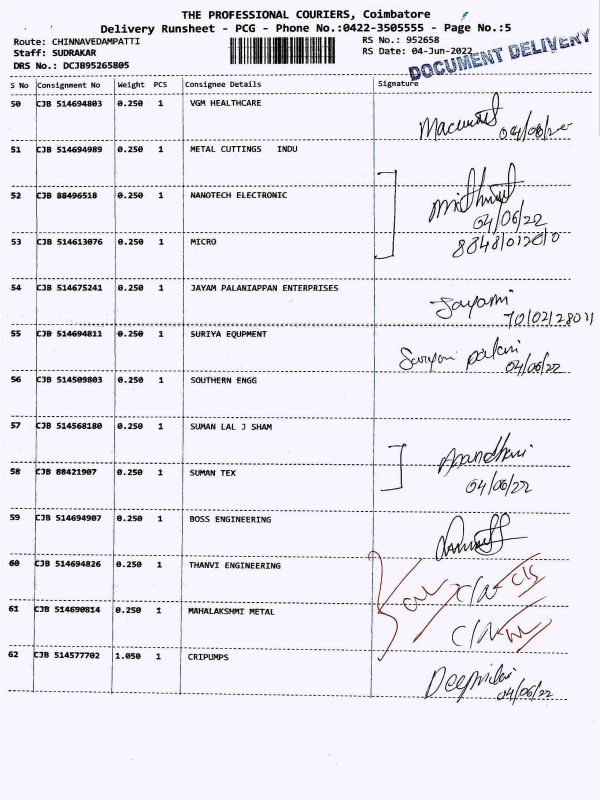 THE PROFESSIONAL COURIERS, Coimbatore
Delivery Runsheet - PCG - Phone No.:0422-3505555 - Page No.:5
Route: CHINNAVEDAMPATTI RS No.: 952658
Staff: SUDRAKAR RS Date: 04-Jun-2022
DRS No.: DCJB95265805
DOCUMENT DELIVERY
S No Consignment No Weight PCS Consignee Details Signature
50 CJB 514694803 0.250 1 VGM HEALTHCARE
04/06/22
51 CJB 514694989 0.250 1 METAL CUTTINGS INDU
52 CJB 88496518 0.250 1 NANOTECH ELECTRONIC
04/06/22
53 CJB 514613076 0.250 1 MICRO
54 CJB 514675241 0.250 1 JAYAM PALANIAPPAN ENTERPRISES
55 CJB 514694811 0.250 1 SURIYA EQUPMENT
04/06/22
56 CJB 514509803 0.250 1 SOUTHERN ENGG
57 CJB 514568180 0.250 1 SUMAN LAL J SHAM
58 CJB 88421907 0.250 1 SUMAN TEX
04/06/22
59 CJB 514694907 0.250 1 BOSS ENGINEERING
60 CJB 514694826 0.250 1 THANVI ENGINEERING
C/N
61 CJB 514690814 0.250 1 MAHALAKSHMI METAL
C/N
62 CJB 514577702 1.050 1 CRIPUMPS
04/06/22